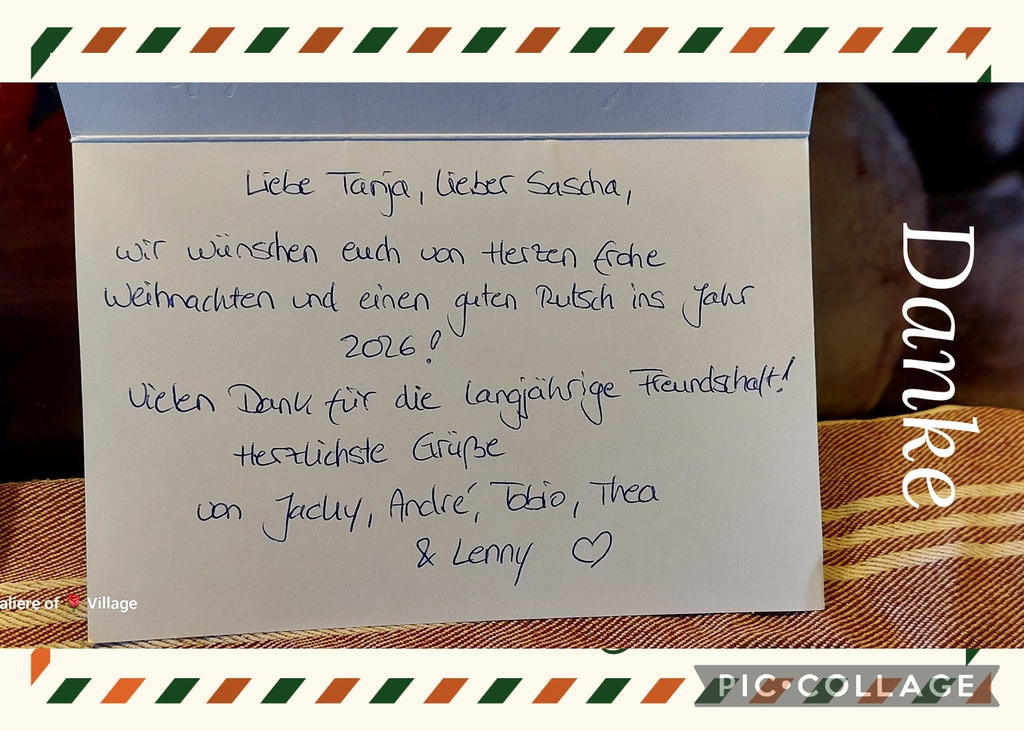 Liebe Tanja, lieber Sascha,
wir wünschen euch von Herzen frohe
Weihnachten und einen guten Rutsch ins Jahr
2026!
Vielen Dank für die langjährige Freundschaft!
Herzlichste Grüße
von Jacky, André, Tobio, Thea
& Lenny ♡
Danke
aliere of 🌹 Village
PIC•COLLAGE